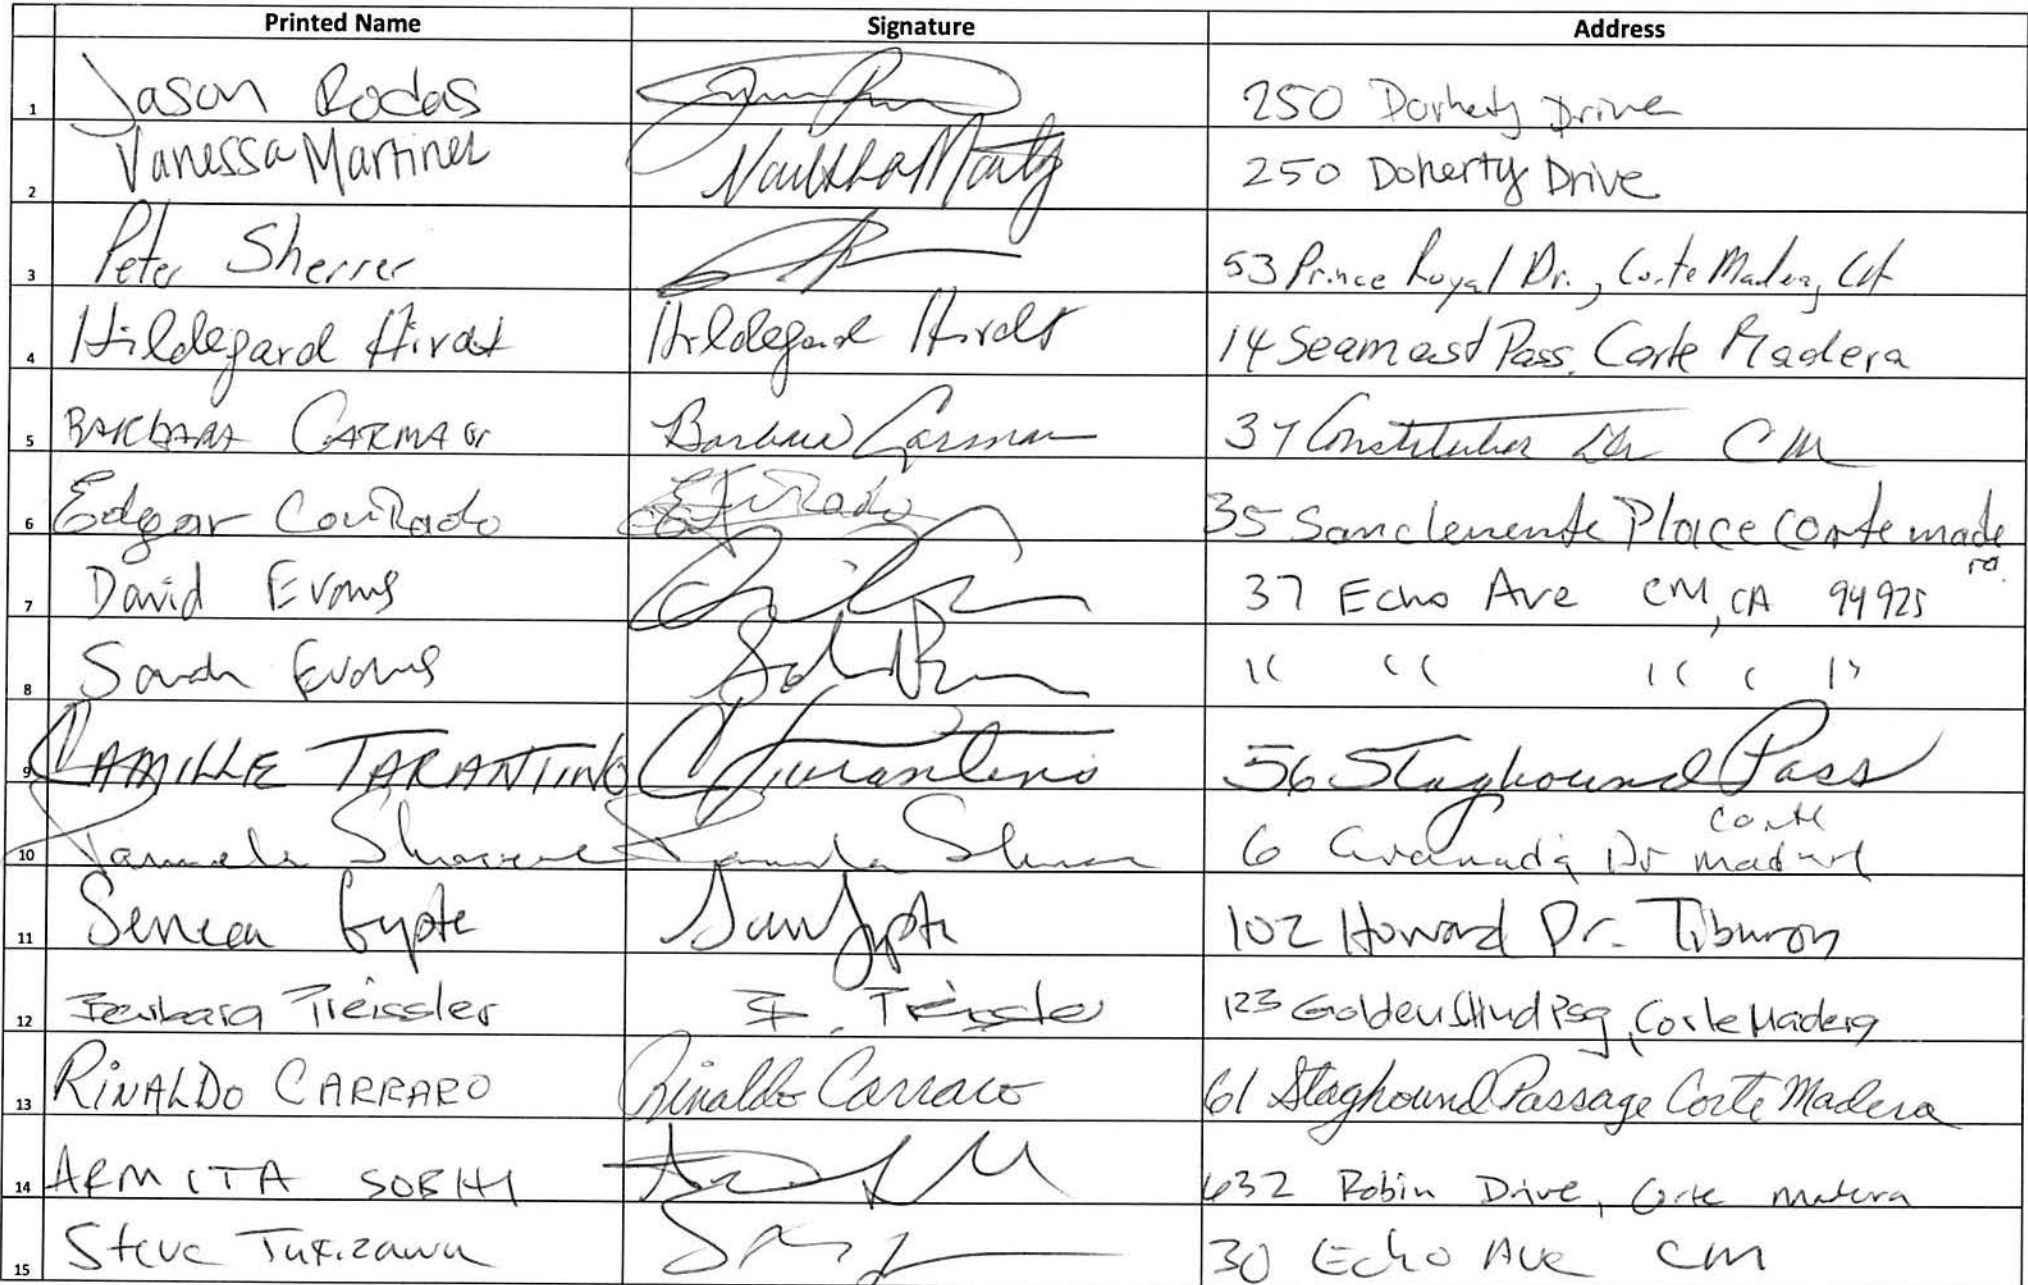 Printed Name Signature Address
1 Jason Rodas 250 Dorhety Drive
2 Vanessa Martinez 250 Doherty Drive
3 Peter Sherrer 53 Prince Royal Dr., Corte Madera, CA
4 Hildegard Hirdt Hildegard Hirdt 14 Seamast Pass. Corte Madera
5 BARBARA CARMAN Barbara Carman 37 Constitution Dr CM
6 Edgar 35 Sanclemente Place Corte made
ra.
7 David Evans 37 Echo Ave CM, CA 94925
8 Sarah Evans " " " " "
9 CAMILLE TARANTINO CTarantino 56 Staghound Pass
Corte
10 Pamela 6 Granada Dr Madera
11 Seneca Gypte 102 Howard Dr. Tiburon
12 Barbara Treissler B. Treissler 123 Golden Hind Psg, Corte Madera
13 RINALDO CARRARO Rinaldo Carraro 61 Staghound Passage Corte Madera
14 ARMITA SOBHI 632 Robin Drive, Corte Madera
15 Steve 30 Echo Ave CM